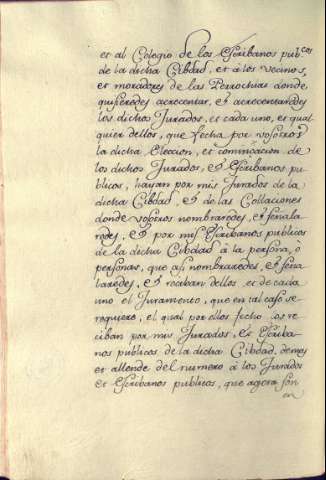 et al Colegio de los Escribanos pub.cos
de la dicha Cibdad, et á los vecinos,
et moradores de las Perrochias donde
quisieredes acrecentar, et acrecentaredes
los dichos Jurados, et cada uno, et qual
quier dellos, que fecha por vosotros
la dicha eleccion, et comunicacion de
los dichos Jurados, et Escribanos pu-
blicos, hayan por mis Jurados de la
dicha Cibdad, et de las Collaciones
donde vosotros nombraredes, et señala
redes, et por mis Escribanos publicos
de la dicha Cibdad á la persona, ò
personas, que asi nombraredes, et seña
laredes, et reciban dellos et de cada
uno el Juramento, que en tal caso se
requiere, el qual por ellos fecho los re
ciban por mis Jurados, et Escriba-
nos publicos de la dicha Cibdad, demas
et allende del numero á los Jurados
et Escribanos publicos, que agora son
en